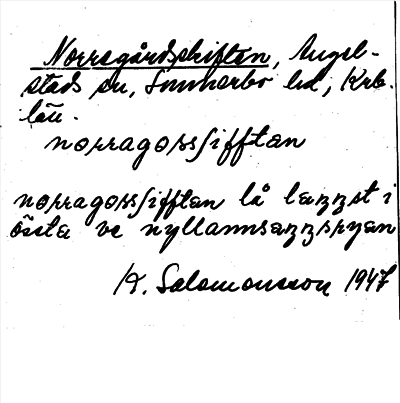 Norregårdsskiften, Angel-
stads sn, Sunnerbo hd, Krb.
län.
norragossſifftan
norragossſifftan lå læȥȥst i
östa ve nyllannsæȥȥskyan
K. Salomonsson 1947